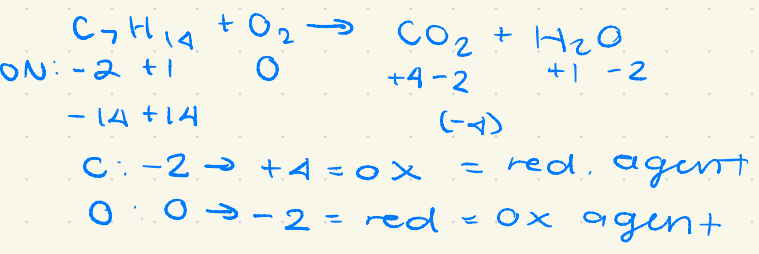 C₇H₁₄ + O₂ → CO₂ + H₂O
ON: -2 +1 0 +4 -2 +1 -2
-14 +14 (-4)
C: -2 → +4 = ox = red. agent
O: 0 → -2 = red = ox agent